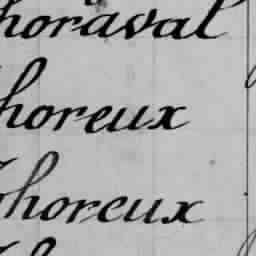 horaval
horeux
Thoreux